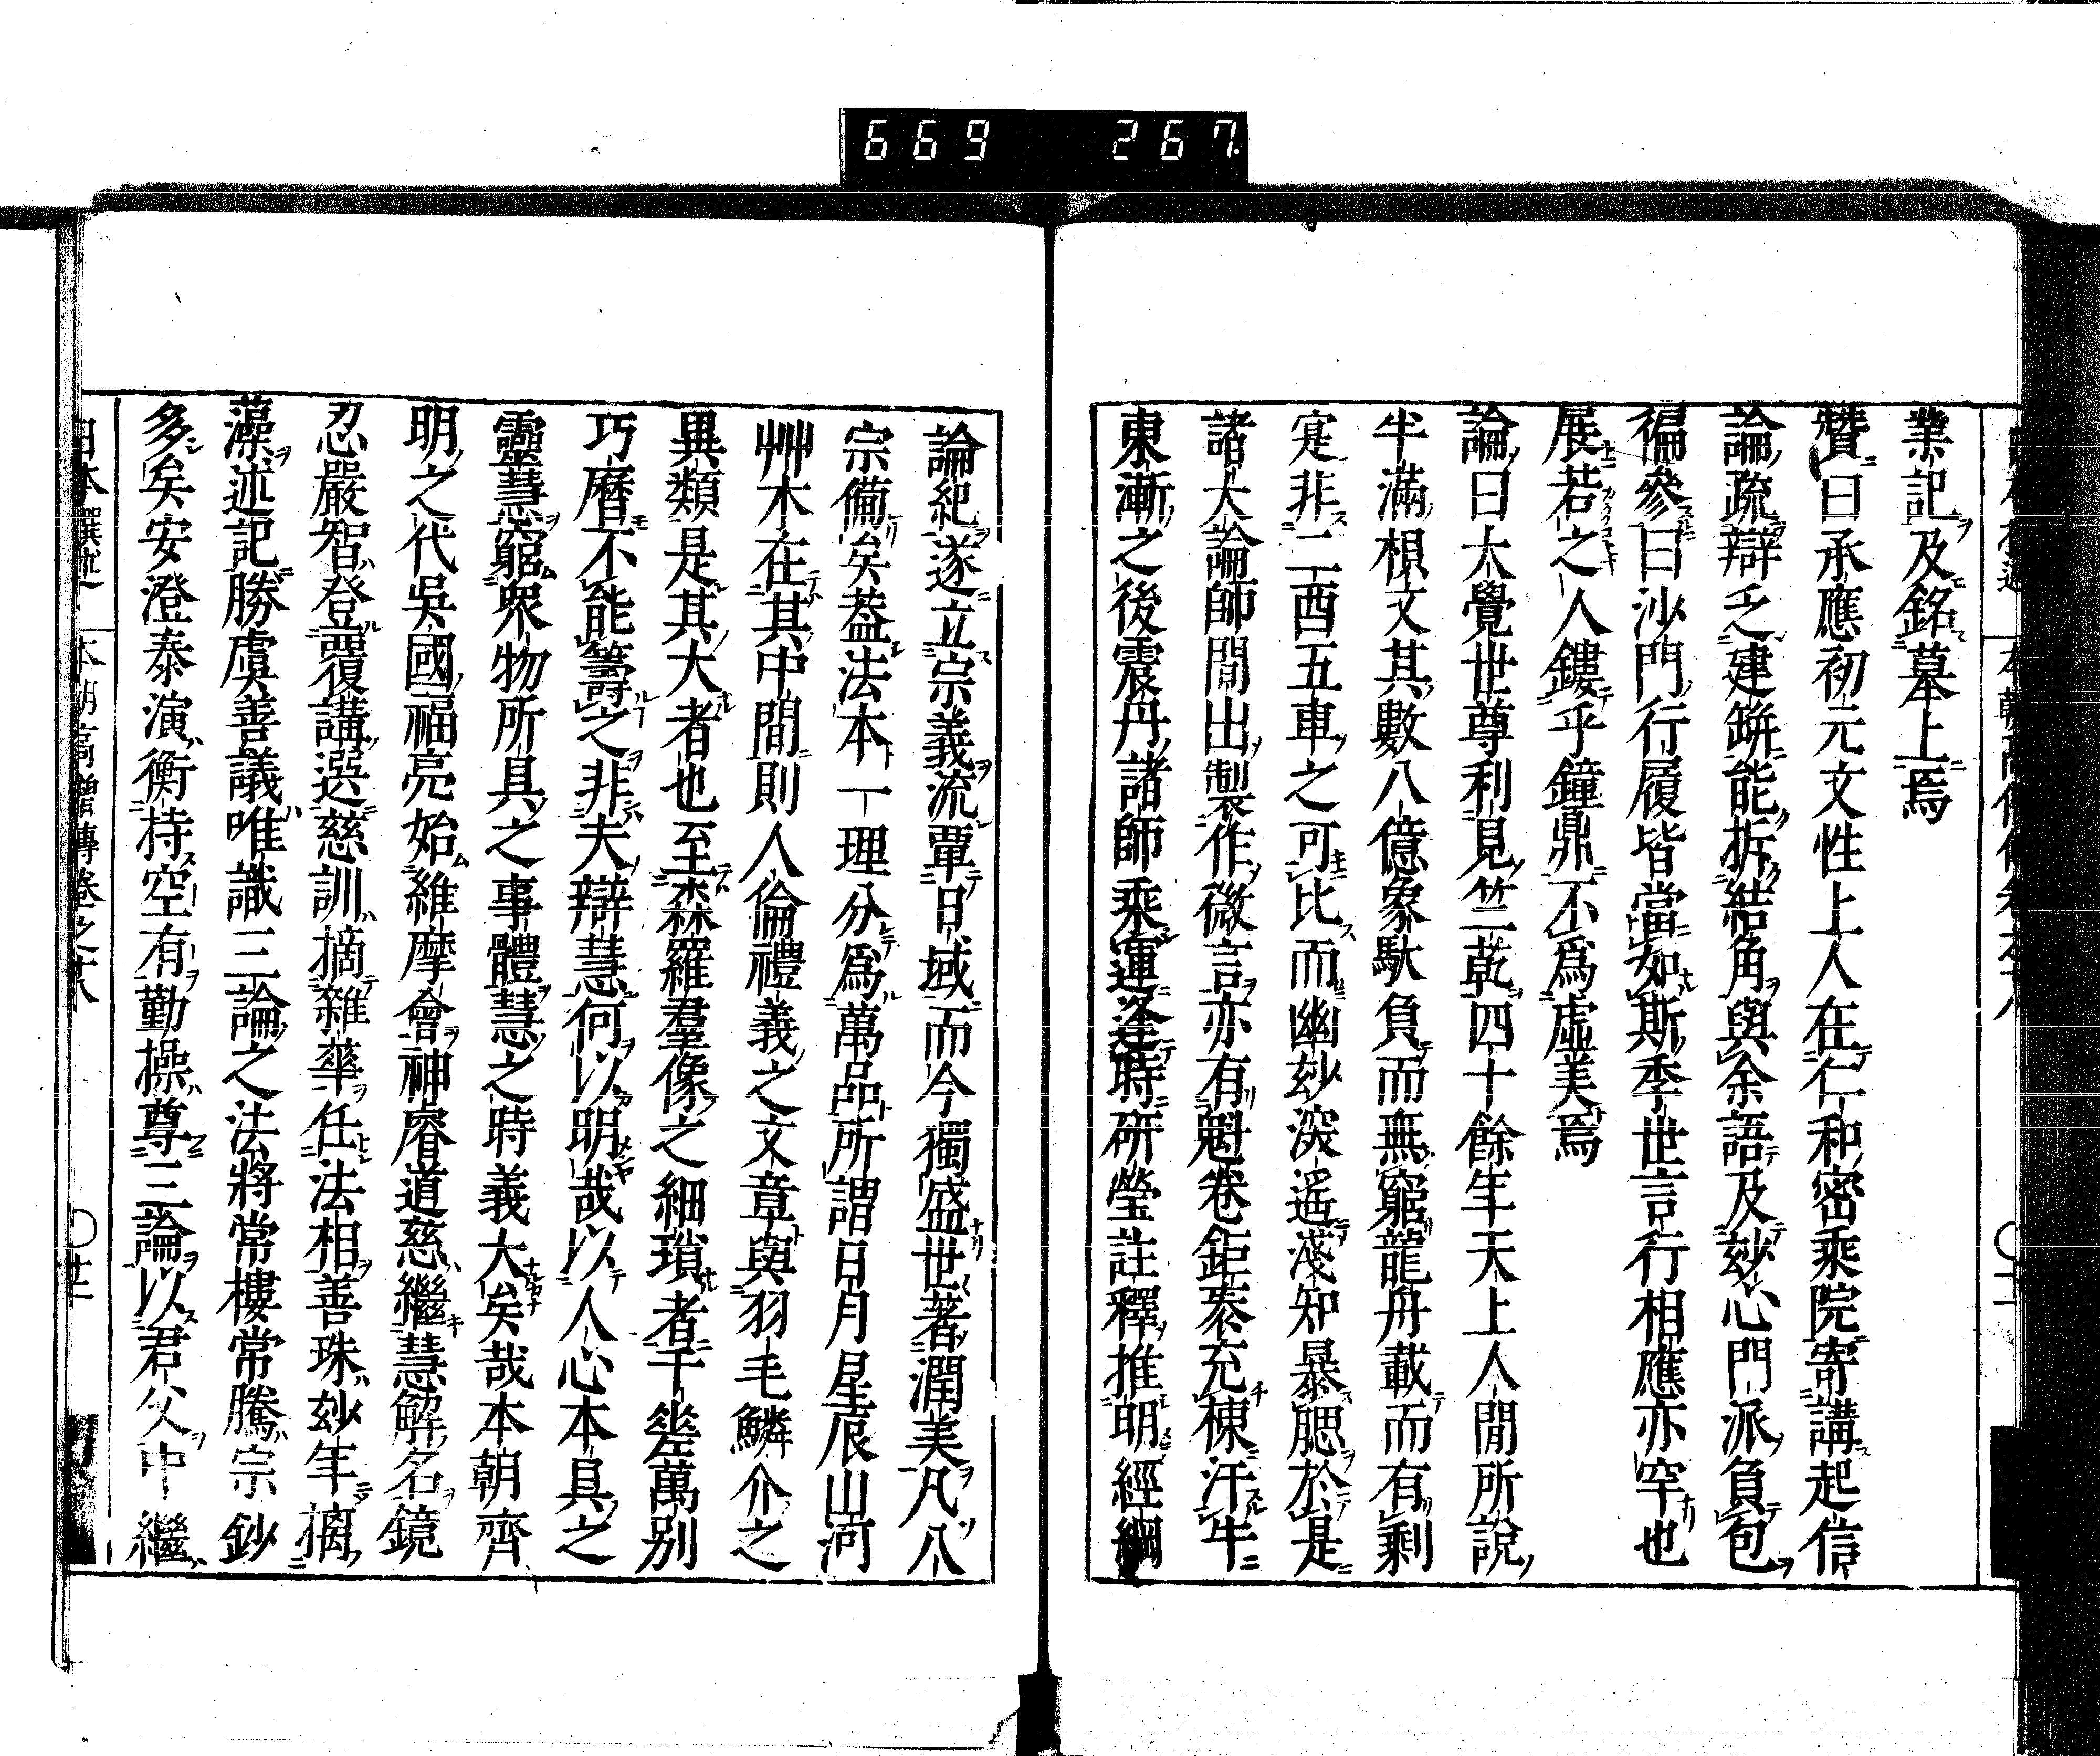 669 267
業記及銘墓上焉
贊曰承應初元文性上人在仁和密乘院寄講起信
論疏辯乏建缾能拆結角與余語及玅心門派負包
徧參曰沙門行履皆當如斯季世言行相應亦罕也
展若之人鏤乎鐘鼎不爲虛美焉
論曰大覺世尊利見竺乾四十餘年天上人間所說
半滿梖文其數八億象馱負而無窮龍舟載而有剩
寔非二酉五車之可比而幽玅深遥淺知暴腮於是
諸大論師間出製作微言亦有魁卷鉅袠充棟汗牛
東漸之後震丹諸師乘運逢時研瑩註釋推明經綱
論紀遂立宗義流覃日域而今獨盛世著潤美凡八
宗備矣葢法本一理分爲萬品所謂日月星辰山河
艸木在其中間則人倫禮義之文章與羽毛鱗介之
異類是其大者也至森羅羣像之細瑣者千差萬别
巧曆不能籌之非夫辯慧何以明哉以人心本具之
靈慧窮衆物所具之事體慧之時義大矣哉本朝齊
明之代吳國福亮始維摩會神睿道慈繼慧解名鏡
忍嚴智登覆講選慈訓摘雜華任法相善珠玅年摛
藻述記勝虞善議唯識三論之法將常樓常騰宗鈔
多矣安澄泰演衡持空有勤操尊三論以君父中繼
日本撰述 本朝高僧傳卷之十八 〇廿二